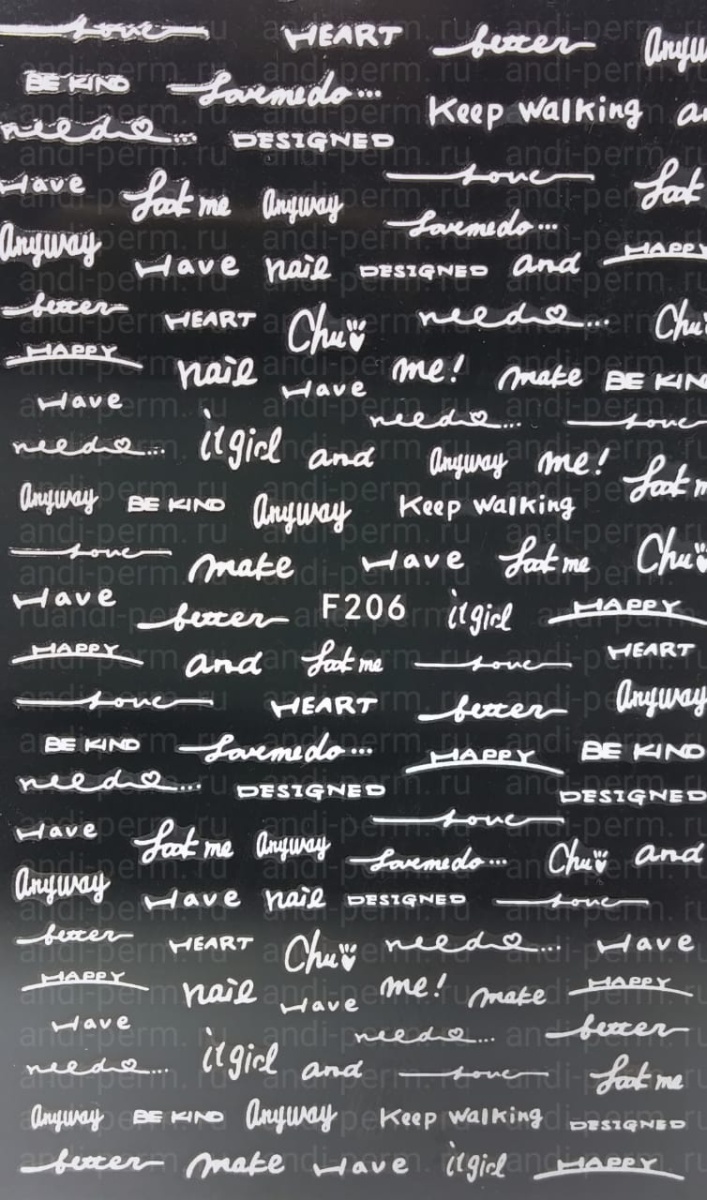 love HEART better Anyw
BE KIND Lovemedo... Keep Walking an
need... DESIGNED
Have Look me Anyway love Look
Anyway Lovemedo...
Have nail DESIGNED and HAPPY
better HEART Chu need... Chu
HAPPY nail Have me! make BE KIND
Have need... love
need... itgirl and Anyway me! Look m
Anyway BE KIND Anyway Keep Walking
love make Have Look me Chu
Have better F206 itgirl HAPPY
HAPPY and Look me love HEART
love HEART better Anyway
BE KIND Lovemedo... HAPPY BE KIND
need... DESIGNED DESIGNED
Have Look me Anyway love
Anyway Lovemedo... Chu and
Have nail DESIGNED love
better HEART Chu need... Have
HAPPY nail Have me! make HAPPY
Have need... better
need... itgirl and love Look me
Anyway BE KIND Anyway Keep Walking DESIGNED
better make Have itgirl HAPPY
andi-perm.ru